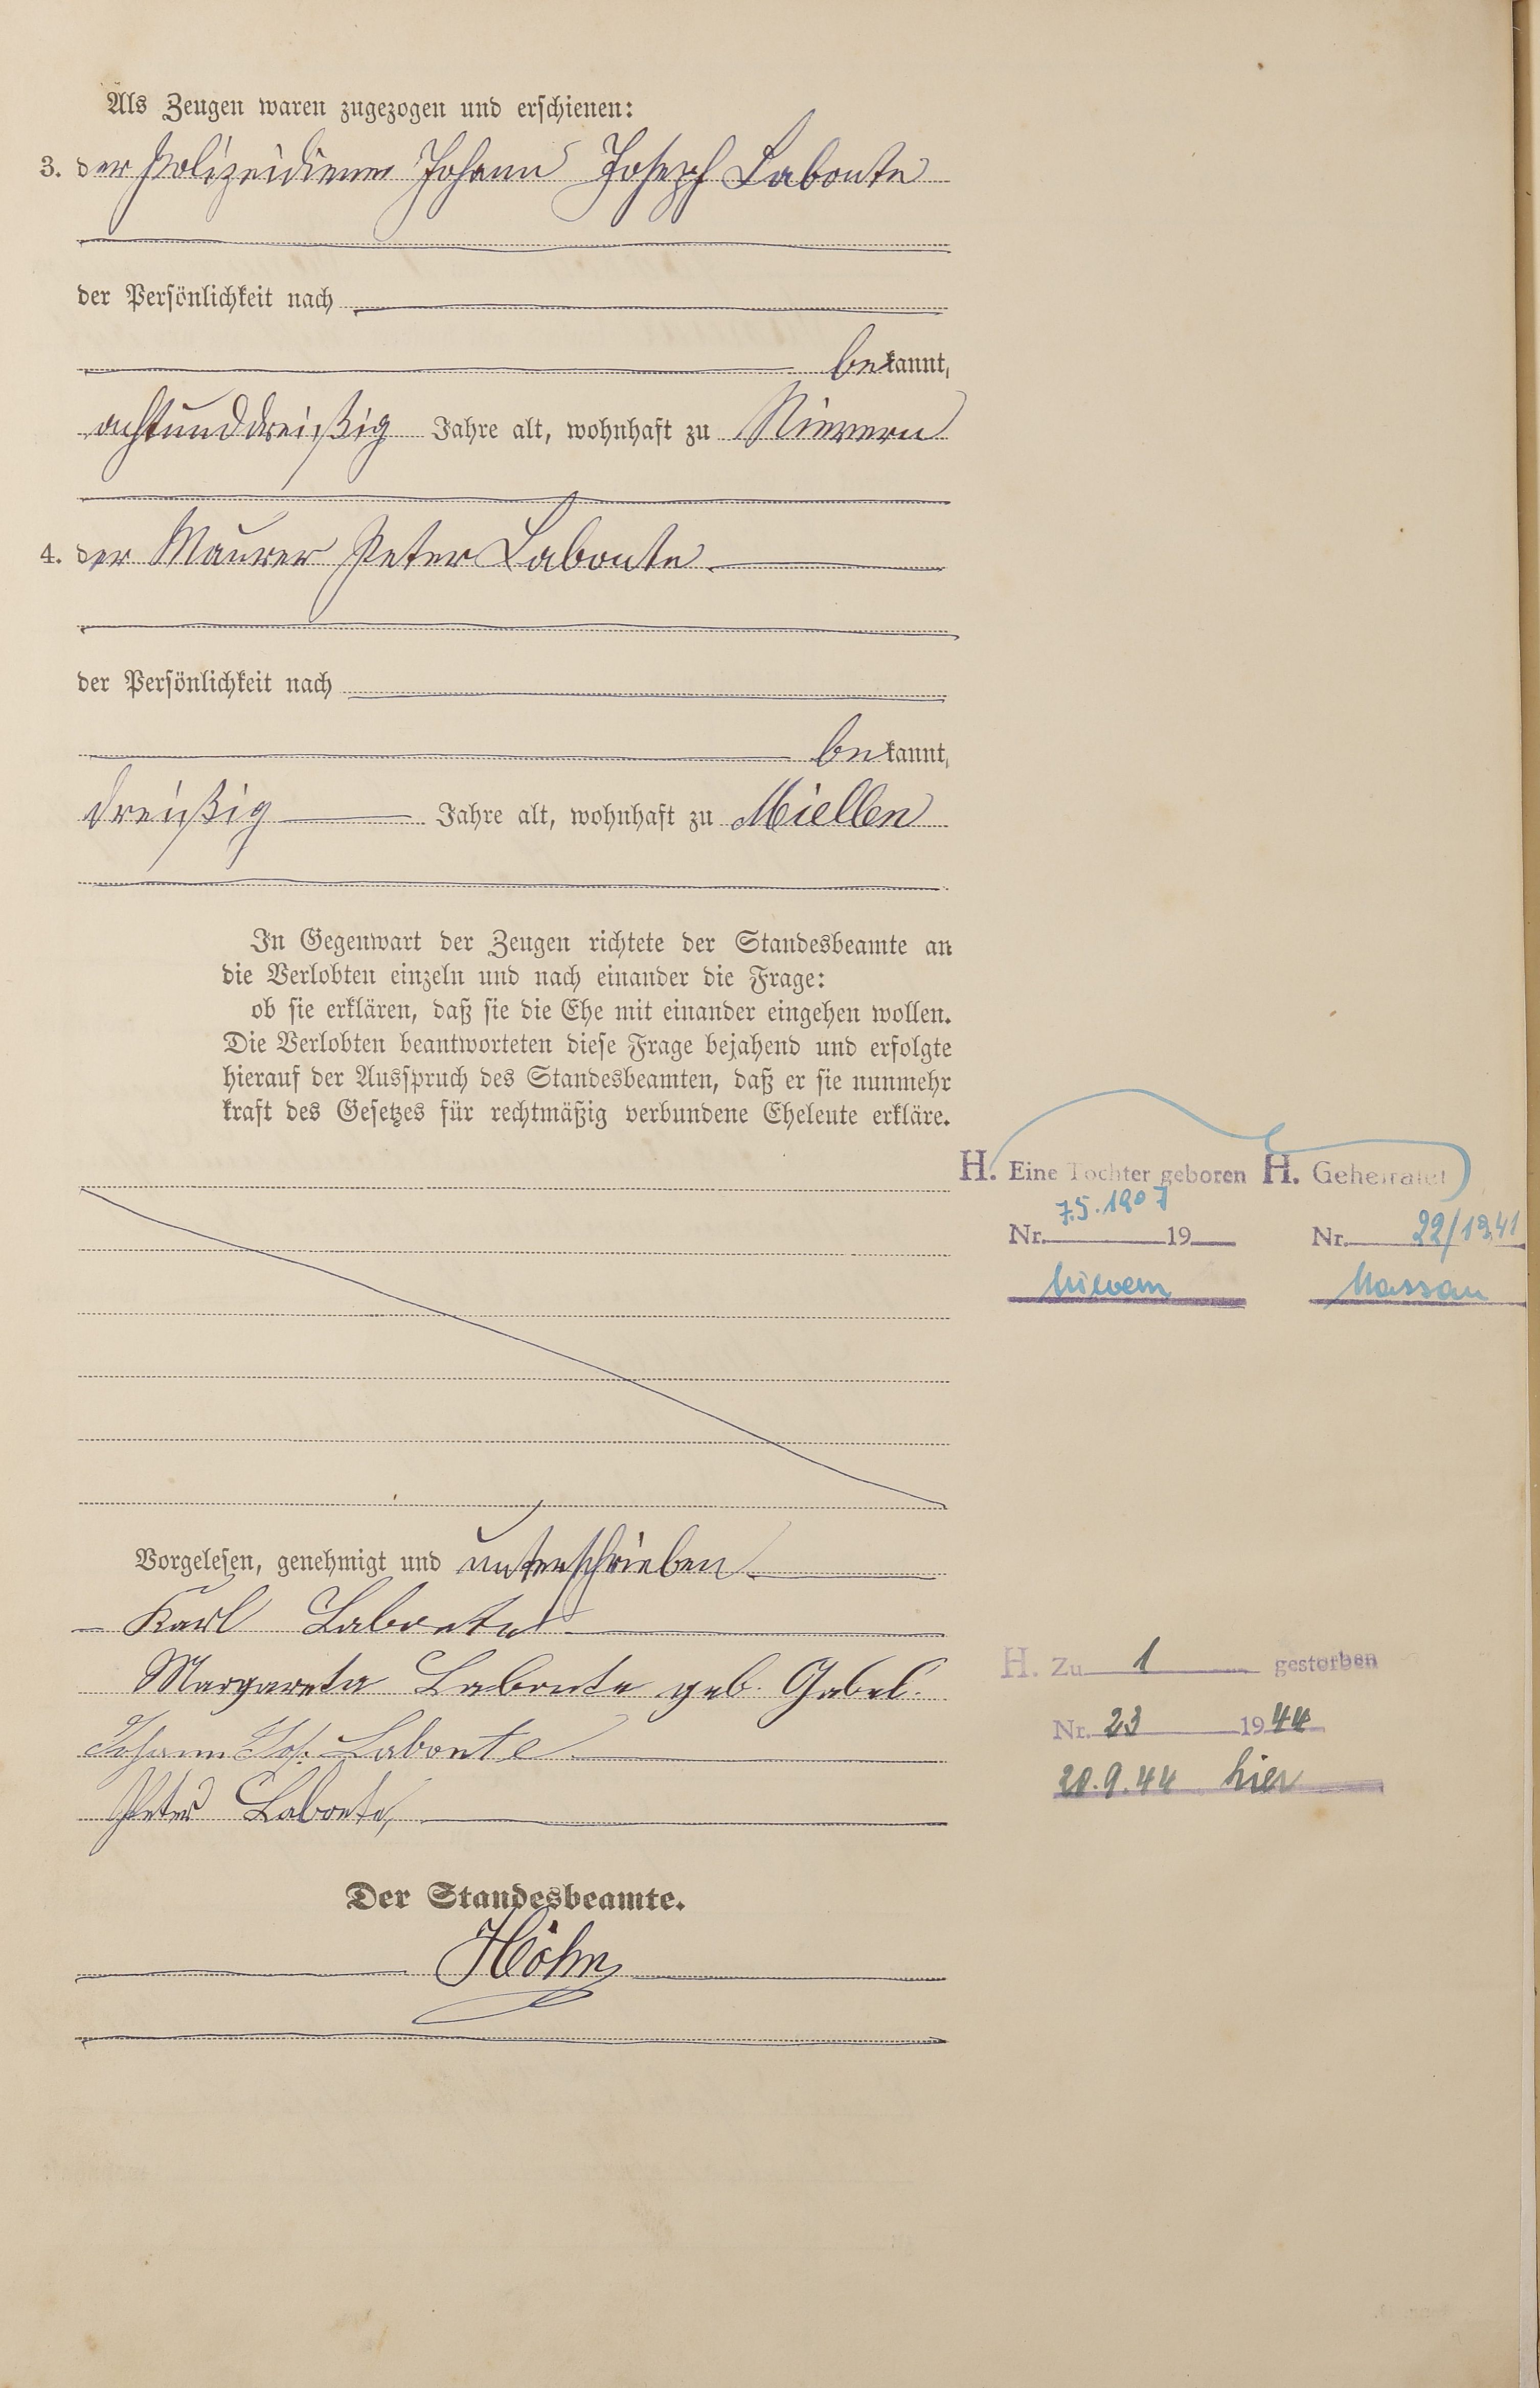 Als Zeugen waren zugezogen und erschienen:
3. der Polizeidiener Johann Joseph Labonte
der Persönlichkeit nach
bekannt,
achtunddreißig Jahre alt, wohnhaft zu Nievern
4. der Maurer Peter Labonte
der Persönlichkeit nach
bekannt,
dreißig Jahre alt, wohnhaft zu Miellen
In Gegenwart der Zeugen richtete der Standesbeamte an
die Verlobten einzeln und nach einander die Frage:
ob sie erklären, daß sie die Ehe mit einander eingehen wollen.
Die Verlobten beantworteten diese Frage bejahend und erfolgte
hierauf der Ausspruch des Standesbeamten, daß er sie nunmehr
kraft des Gesetzes für rechtmäßig verbundene Eheleute erkläre.
H. Eine Tochter geboren H. Geheiratet
7.5.1907
Nr. 19 Nr. 22/1941
Nievern Nassau
Vorgelesen, genehmigt und unterschrieben
Karl Labonte
Margareta Labonte geb. Gabel.
Johann Jos. Labonte
Peter Labonte
H. Zu 1 gestorben
Nr. 23 1944
20.9.44 hier
Der Standesbeamte.
Höhn